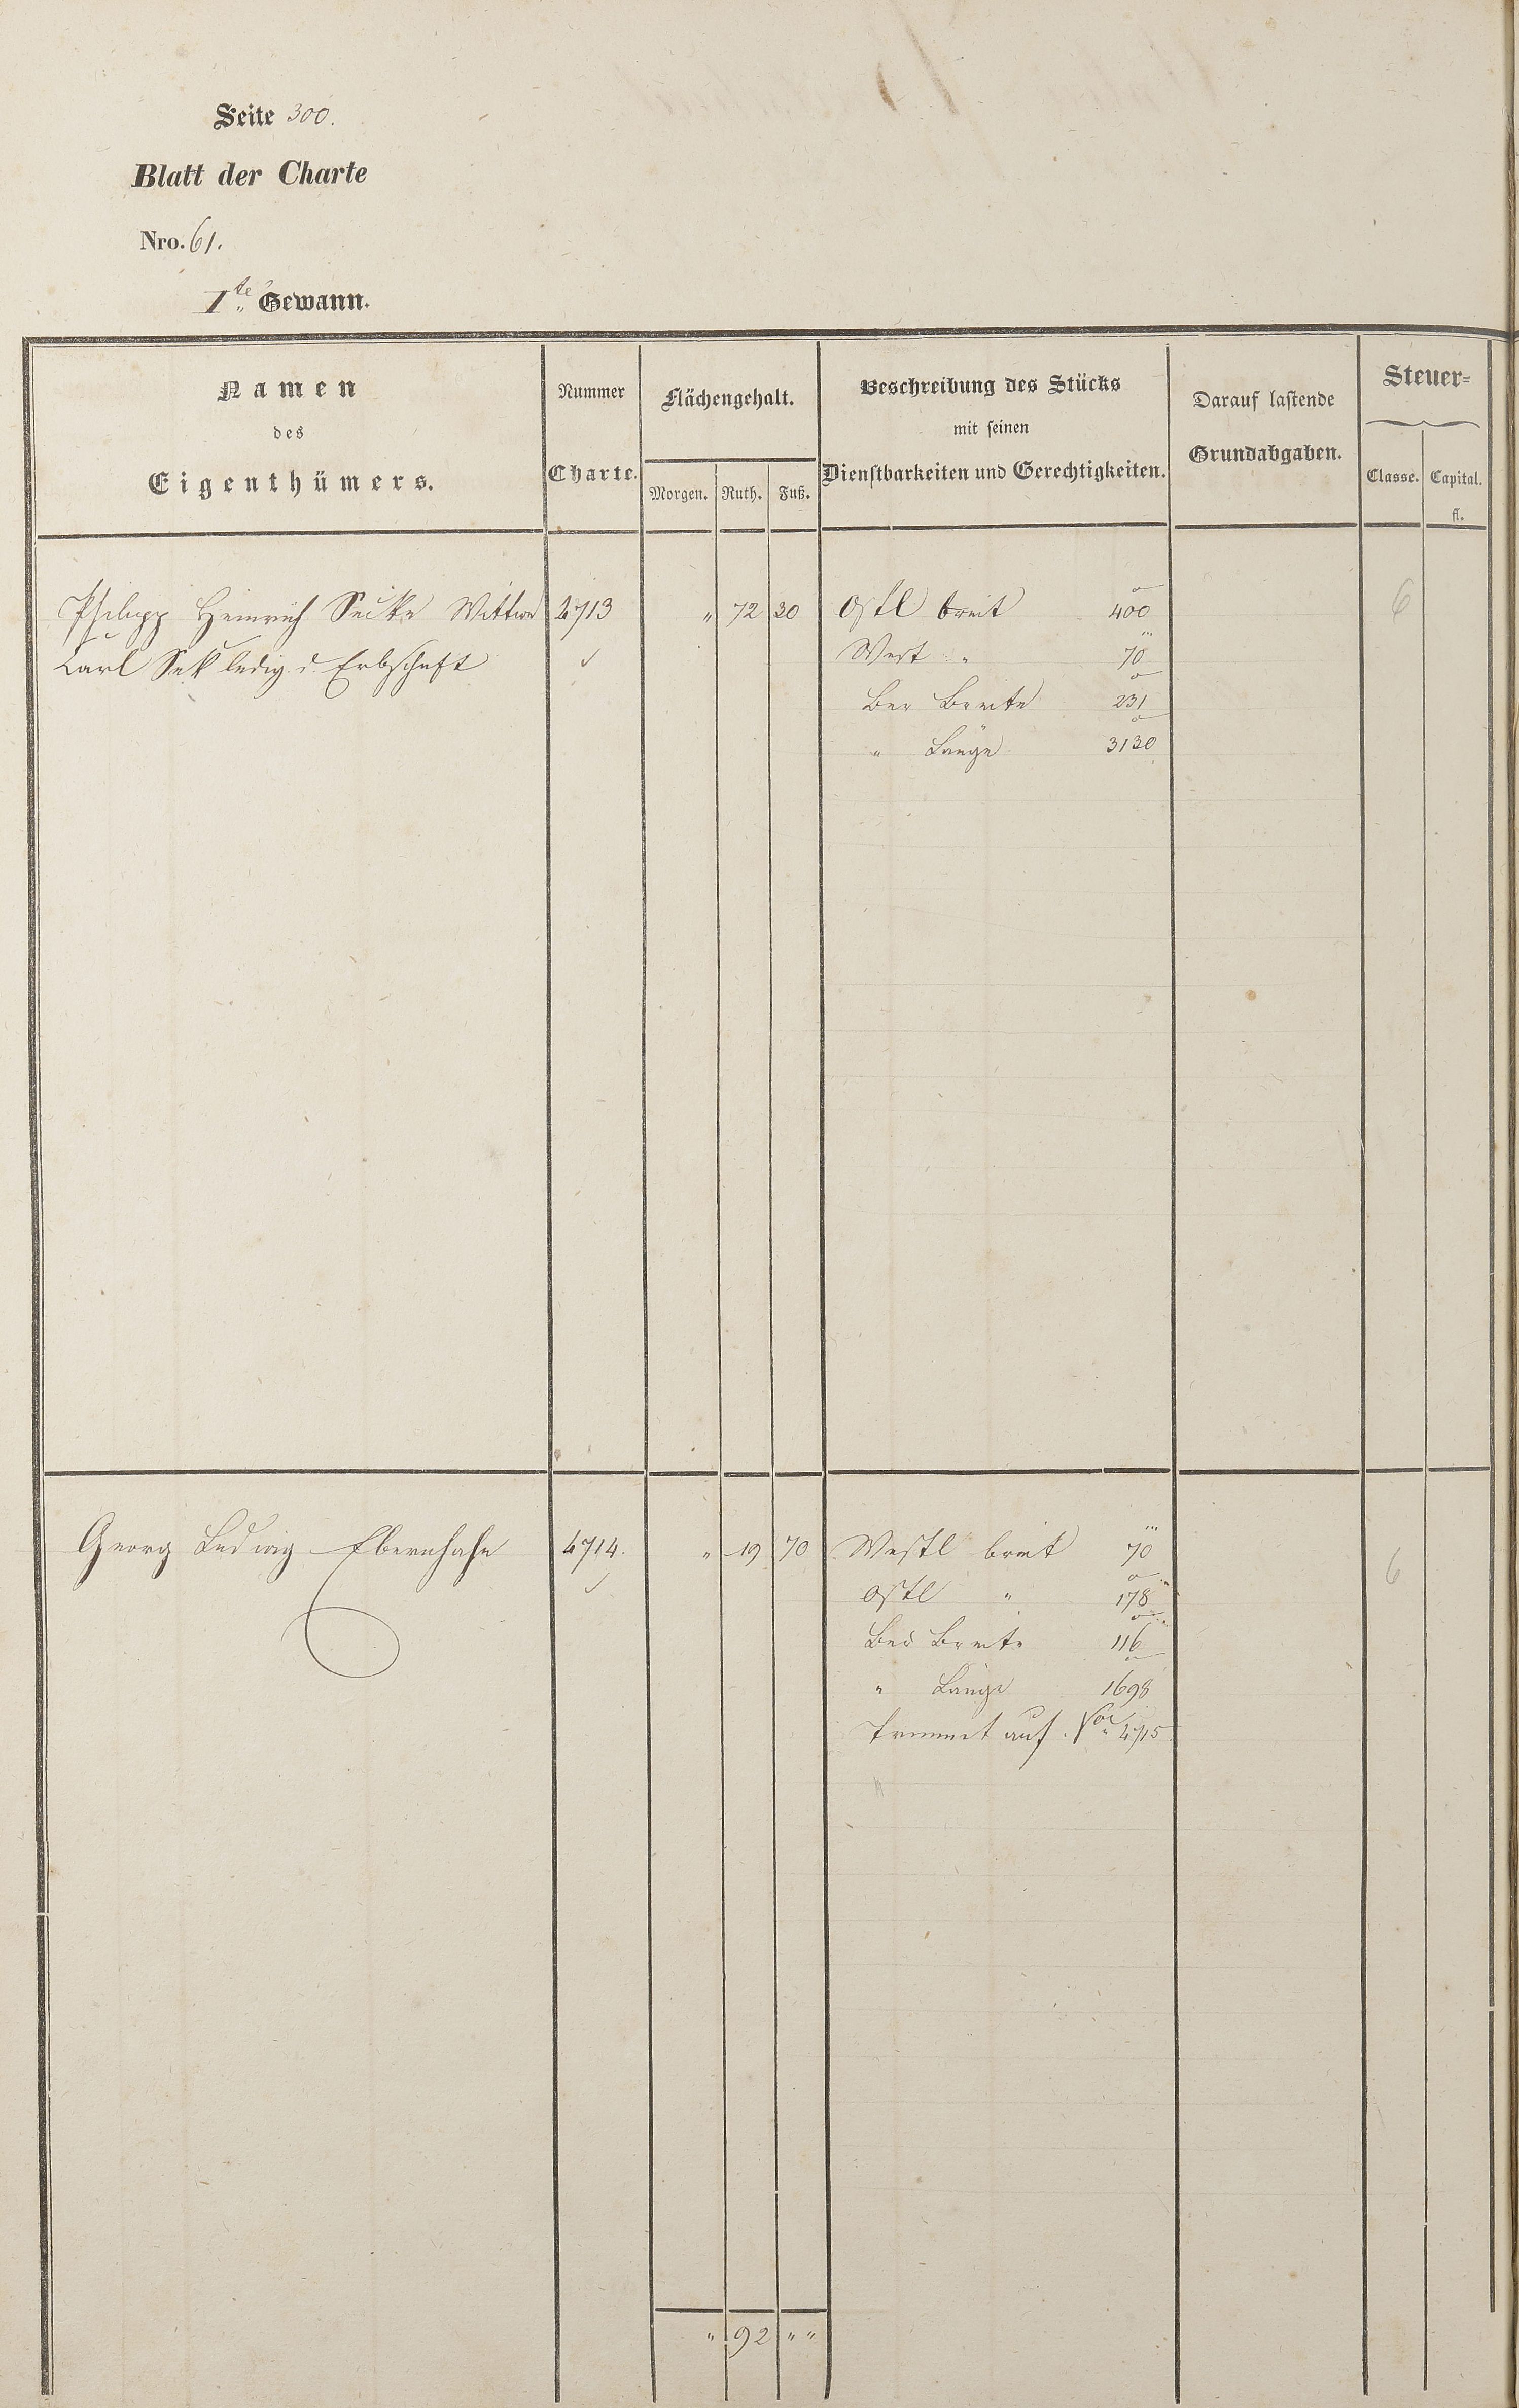 Seite 300.
Blatt der Charte
Nro. 61.
1te Gewann.
Namen des Eigenthümers.
Nummer Charte.
Flächengehalt.
Morgen. Ruth. Fuß.
Beschreibung des Stücks
mit seinen
Dienstbarkeiten und Gerechtigkeiten.
Darauf lastende
Grundabgaben.
Steuer=
Classe. Capital.
fl.
Philipp Heinrich Wittwe 4713 " 72 30 Ostl breit 400 6
Carl Sek ledig d. Erbschaft West " 70
Ber Breite 231
" Länge 3130
Georg Ludwig Ebernhahn 4714. " 19 70 Westl breit 70 6
Ostl " 178
Ber Breite 116
" Länge 1698
auf No 4715
" 92 " "